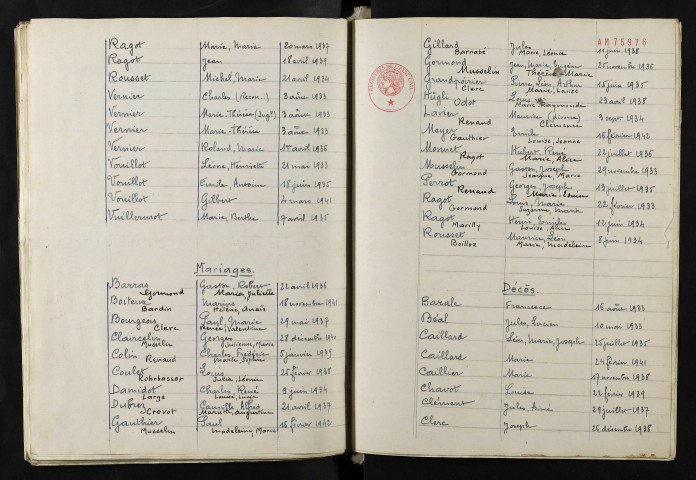 Ragot Marie, Marie 20 mars 1937
Ragot Jean 18 avril 1939
Rousset Michel, Marie 21 avril 1934
Vernier Charles 3 août 1933
Vernier Marie-Thérèse 3 août 1933
Vernier Marie-Thérèse 3 août 1933
Vernier Roland, Marie 1er avril 1936
Vouillot Léone, Henriette 21 mai 1933
Vouillot Emile, Antoine 18 juin 1935
Vouillot Gilbert 4 mars 1941
Vuillermot Marie, Berthe 7 avril 1935
Mariages.
Barras Gaston, Robert 22 avril 1936
Gormond Marie, Juliette
Boiteux Marius 18 novembre 1941
Bardin Hélène, Anaïs
Bourgeois Paul, Marie 29 mai 1937
Clerc Renée, Valentine
Claircelin Georges 28 décembre 1940
Musselin Suzanne, Marie
Colin Charles, Frédéric 5 janvier 1939
Renaud Marie, Sophie
Coulet Louis 26 février 1938
Rohrbasser Julia, Léonie
Damidot Charles, René 9 juin 1934
Large Louise, Lucie
Dufner Camille, Alfred 21 avril 1937
Crevot Augustine
Gauthier Paul 16 février 1942
Musselin Madeleine, Marie
AM75976
Gillard Jules 11 juin 1938
Barnabé Marie, Léonie
Gormond Jean, Marie, Eugène 26 novembre 1936
Musselin Thérèse, Marie
Grandpoirier Pierre, Léon, Arthur 15 juin 1935
Clerc Marie, Louise
Hügli Louis 23 avril 1938
Odot Marie, Raymonde
Lavier Maurice (divorcé) 3 sept 1934
Renaud Clémence
Meyer Emile 16 février 1942
Gauthier Louise, Jeanne
Monnet Hubert, René 22 juillet 1936
Ragot Marie, Alice
Musselin Gaston, Joseph 29 novembre 1933
Gormond Jeanne, Marie
Perrot Georges, Joseph 13 juillet 1935
Renaud Marie, Louise
Ragot Louis, Marie 22 février 1933
Gormond Suzanne, Marie
Ragot Henri 12 juin 1934
Marilly Louise, Alice
Rousset Maurice, Léon 8 juin 1934
Boillez Marie, Madeleine
Décès.
Barale Francesco 16 août 1933
Béal Jules, Lucien 10 mai 1933
Caillard Léon, Marie, Joseph 25 juillet 1935
Caillard Marie 24 février 1941
Caillier Marie 17 novembre 1938
Chavot Louise 22 février 1939
Clément Jules, Aimé 29 juillet 1937
Clerc Joseph 26 décembre 1938